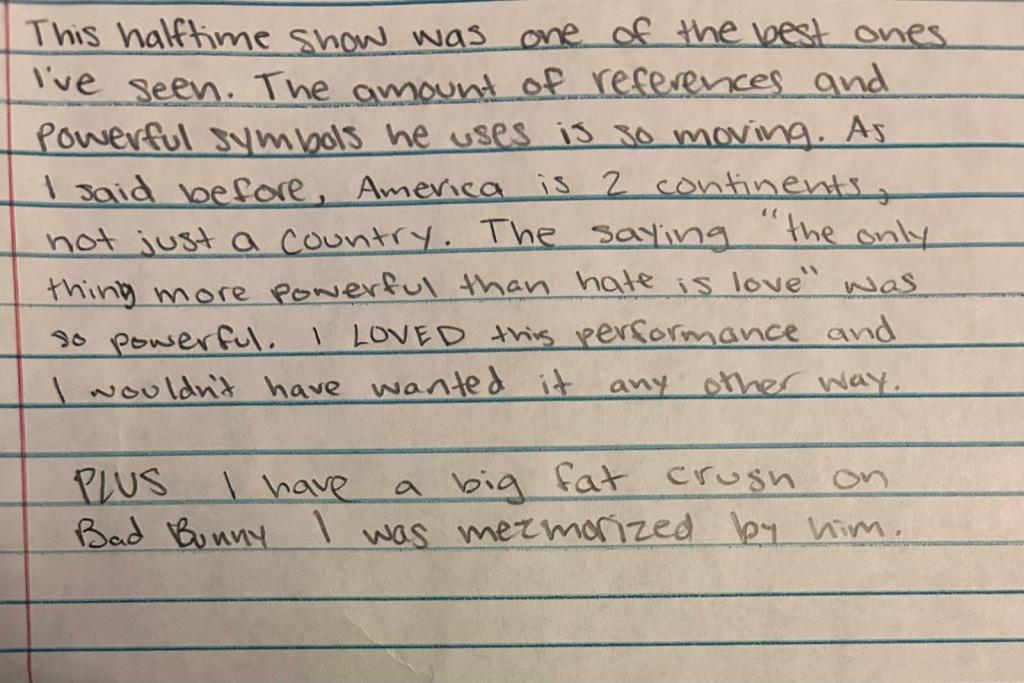 This halftime show was one of the best ones
I've seen. The amount of references and
powerful symbols he uses is so moving. As
I said before, America is 2 continents,
not just a country. The saying "the only
thing more powerful than hate is love" was
so powerful. I LOVED this performance and
I wouldn't have wanted it any other way.
PLUS I have a big fat crush on
Bad Bunny I was mezmorized by him.